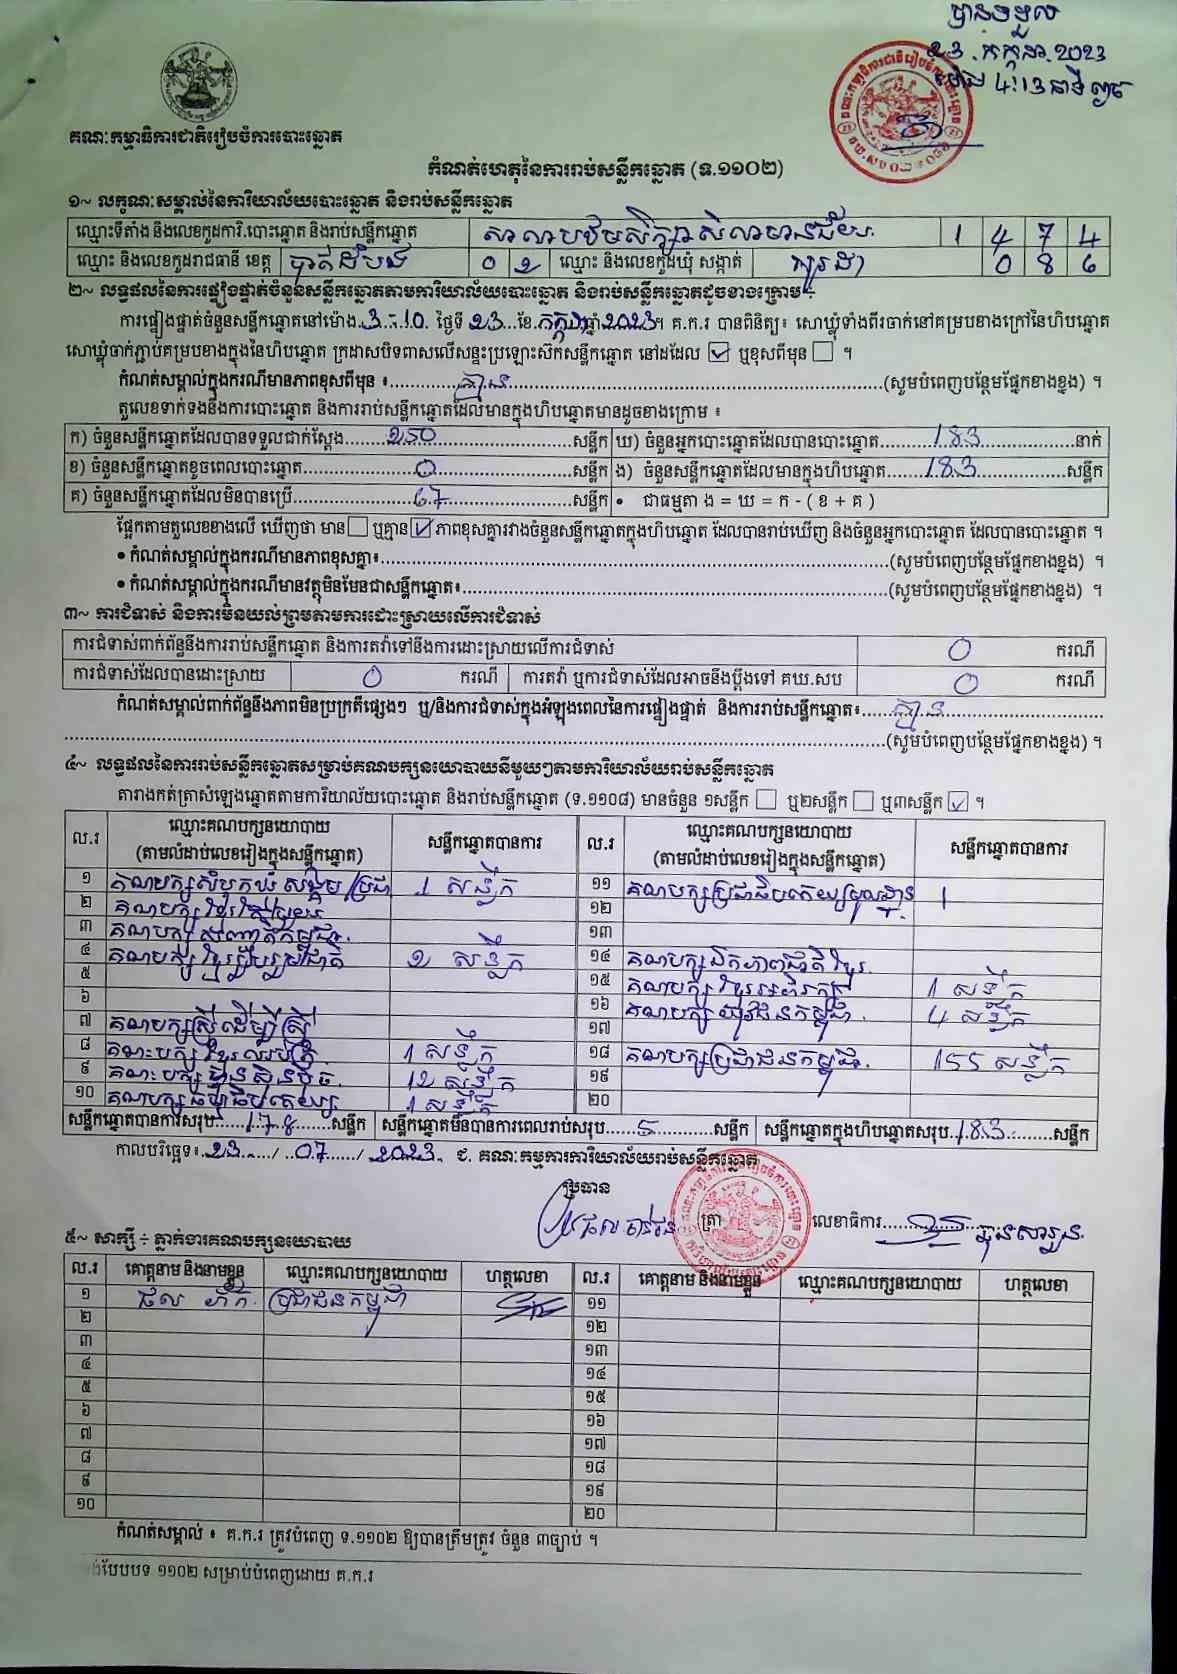 បានទទួល
23 . កក្កដា . 2023
ម៉ោង 4:13 នាទី ល្ងាច
គណៈកម្មាធិការជាតិរៀបចំការបោះឆ្នោត
កំណត់ហេតុនៃការរាប់សន្លឹកឆ្នោត (ទ.១១០២)
១~ លក្ខណៈសម្គាល់នៃការិយាល័យបោះឆ្នោត និងរាប់សន្លឹកឆ្នោត
ឈ្មោះទីតាំង និងលេខកូដការិ.បោះឆ្នោត និងរាប់សន្លឹកឆ្នោត សាលាបឋមសិក្សាសិលាមានជ័យ 1 4 7 4
ឈ្មោះ និងលេខកូដរាជធានី ខេត្ត បាត់ដំបង 0 2 ឈ្មោះ និងលេខកូដឃុំ សង្កាត់ 0 8 6
២~ លទ្ធផលនៃការផ្ទៀងផ្ទាត់ចំនួនសន្លឹកឆ្នោតតាមការិយាល័យបោះឆ្នោត និងរាប់សន្លឹកឆ្នោតដូចខាងក្រោម ÷
ការផ្ទៀងផ្ទាត់ចំនួនសន្លឹកឆ្នោតនៅម៉ោង 3 - 10 ថ្ងៃទី 23 ខែ កក្កដា ឆ្នាំ 2023 ។ គ.ក.រ បានពិនិត្យ៖ សោឃ្លុំទាំងពីរចាក់នៅគម្របខាងក្រៅនៃហិបឆ្នោត
សោឃ្លុំចាក់ភ្ជាប់គម្របខាងក្នុងនៃហិបឆ្នោត ក្រដាសបិទពាសលើសន្ទះប្រឡោះស៊កសន្លឹកឆ្នោត នៅដដែល ☑ ឬខុសពីមុន ☐ ។
កំណត់សម្គាល់ក្នុងករណីមានភាពខុសពីមុន ៖ គ្មាន (សូមបំពេញបន្ថែមផ្នែកខាងខ្នង) ។
តួលេខទាក់ទងនឹងការបោះឆ្នោត និងការរាប់សន្លឹកឆ្នោតដែលមានក្នុងហិបឆ្នោតមានដូចខាងក្រោម ៖
ក) ចំនួនសន្លឹកឆ្នោតដែលបានទទួលជាក់ស្តែង 250 សន្លឹក ឃ) ចំនួនអ្នកបោះឆ្នោតដែលបានបោះឆ្នោត 183 នាក់
ខ) ចំនួនសន្លឹកឆ្នោតខូចពេលបោះឆ្នោត 0 សន្លឹក ង) ចំនួនសន្លឹកឆ្នោតដែលមានក្នុងហិបឆ្នោត 183 សន្លឹក
គ) ចំនួនសន្លឹកឆ្នោតដែលមិនបានប្រើ 67 សន្លឹក • ជាធម្មតា ង = ឃ = ក - ( ខ + គ )
ផ្អែកតាមតួលេខខាងលើ ឃើញថា មាន ☐ ឬគ្មាន ☑ ភាពខុសគ្នារវាងចំនួនសន្លឹកឆ្នោតក្នុងហិបឆ្នោត ដែលបានរាប់ឃើញ និងចំនួនអ្នកបោះឆ្នោត ដែលបានបោះឆ្នោត ។
• កំណត់សម្គាល់ក្នុងករណីមានភាពខុសគ្នា៖ (សូមបំពេញបន្ថែមផ្នែកខាងខ្នង) ។
• កំណត់សម្គាល់ក្នុងករណីមានវត្ថុមិនមែនជាសន្លឹកឆ្នោត៖ (សូមបំពេញបន្ថែមផ្នែកខាងខ្នង) ។
៣~ ការជំទាស់ និងការមិនយល់ព្រមតាមការដោះស្រាយលើការជំទាស់
ការជំទាស់ពាក់ព័ន្ធនឹងការរាប់សន្លឹកឆ្នោត និងការតវ៉ាទៅនឹងការដោះស្រាយលើការជំទាស់ 0 ករណី
ការជំទាស់ដែលបានដោះស្រាយ 0 ករណី ការតវ៉ា ឬការជំទាស់ដែលអាចនឹងប្តឹងទៅ គឃ.សប 0 ករណី
កំណត់សម្គាល់ពាក់ព័ន្ធនឹងភាពមិនប្រក្រតីផ្សេងៗ ឬ/និងការជំទាស់ក្នុងអំឡុងពេលនៃការផ្ទៀងផ្ទាត់ និងការរាប់សន្លឹកឆ្នោត៖ គ្មាន
(សូមបំពេញបន្ថែមផ្នែកខាងខ្នង) ។
៤~ លទ្ធផលនៃការរាប់សន្លឹកឆ្នោតសម្រាប់គណបក្សនយោបាយនីមួយៗតាមការិយាល័យរាប់សន្លឹកឆ្នោត
តារាងកត់ត្រាសំឡេងឆ្នោតតាមការិយាល័យបោះឆ្នោត និងរាប់សន្លឹកឆ្នោត (ទ.១១០៨) មានចំនួន ១សន្លឹក ☐ ឬ២សន្លឹក ☐ ឬ៣សន្លឹក ☑ ។
ល.រ ឈ្មោះគណបក្សនយោបាយ (តាមលំដាប់លេខរៀងក្នុងសន្លឹកឆ្នោត) សន្លឹកឆ្នោតបានការ ល.រ ឈ្មោះគណបក្សនយោបាយ (តាមលំដាប់លេខរៀងក្នុងសន្លឹកឆ្នោត) សន្លឹកឆ្នោតបានការ
១ គណបក្សសំបុកឃ្មុំសង្គមប្រជា 1 សន្លឹក ១១ គណបក្សប្រជាធិបតេយ្យមូលដ្ឋាន 1
២ គណបក្សខ្មែរតែមួយ ១២
៣ គណបក្សសញ្ជាតិកម្ពុជា ១៣
៤ គណបក្សខ្មែររួបរួមជាតិ 2 សន្លឹក ១៤ គណបក្សឯកភាពជាតិខ្មែរ
៥ ១៥ គណបក្សខ្មែរអភិរក្ស 1 សន្លឹក
៦ ១៦ គណបក្សយុវជនកម្ពុជា 4 សន្លឹក
៧ គណបក្សស្ត្រីដើម្បីស្ត្រី ១៧
៨ គណៈបក្សខ្មែរឈប់ក្រ 1 សន្លឹក ១៨ គណបក្សប្រជាជនកម្ពុជា 155 សន្លឹក
៩ គណៈបក្សហ៊្វុនស៊ិនប៉ិច 12 សន្លឹក ១៩
១០ គណបក្សធម្មាធិបតេយ្យ 1 សន្លឹក ២០
សន្លឹកឆ្នោតបានការសរុប 178 សន្លឹក សន្លឹកឆ្នោតមិនបានការពេលរាប់សរុប 5 សន្លឹក សន្លឹកឆ្នោតក្នុងហិបឆ្នោតសរុប 183 សន្លឹក
កាលបរិច្ឆេទ៖ 23 / 07 / 2023 ជ. គណៈកម្មការការិយាល័យរាប់សន្លឹកឆ្នោត
ប្រធាន
ត្រា លេខាធិការ
៥~ សាក្សី ÷ ភ្នាក់ងារគណបក្សនយោបាយ
ល.រ គោត្តនាម និងនាមខ្លួន ឈ្មោះគណបក្សនយោបាយ ហត្ថលេខា ល.រ គោត្តនាម និងនាមខ្លួន ឈ្មោះគណបក្សនយោបាយ ហត្ថលេខា
១ ផល ហ៊ីក ប្រជាជនកម្ពុជា ១១
២ ១២
៣ ១៣
៤ ១៤
៥ ១៥
៦ ១៦
៧ ១៧
៨ ១៨
៩ ១៩
១០ ២០
កំណត់សម្គាល់ ៖ គ.ក.រ ត្រូវបំពេញ ទ.១១០២ ឱ្យបានត្រឹមត្រូវ ចំនួន ៣ច្បាប់ ។
បែបបទ ១១០២ សម្រាប់បំពេញដោយ គ.ក.រ